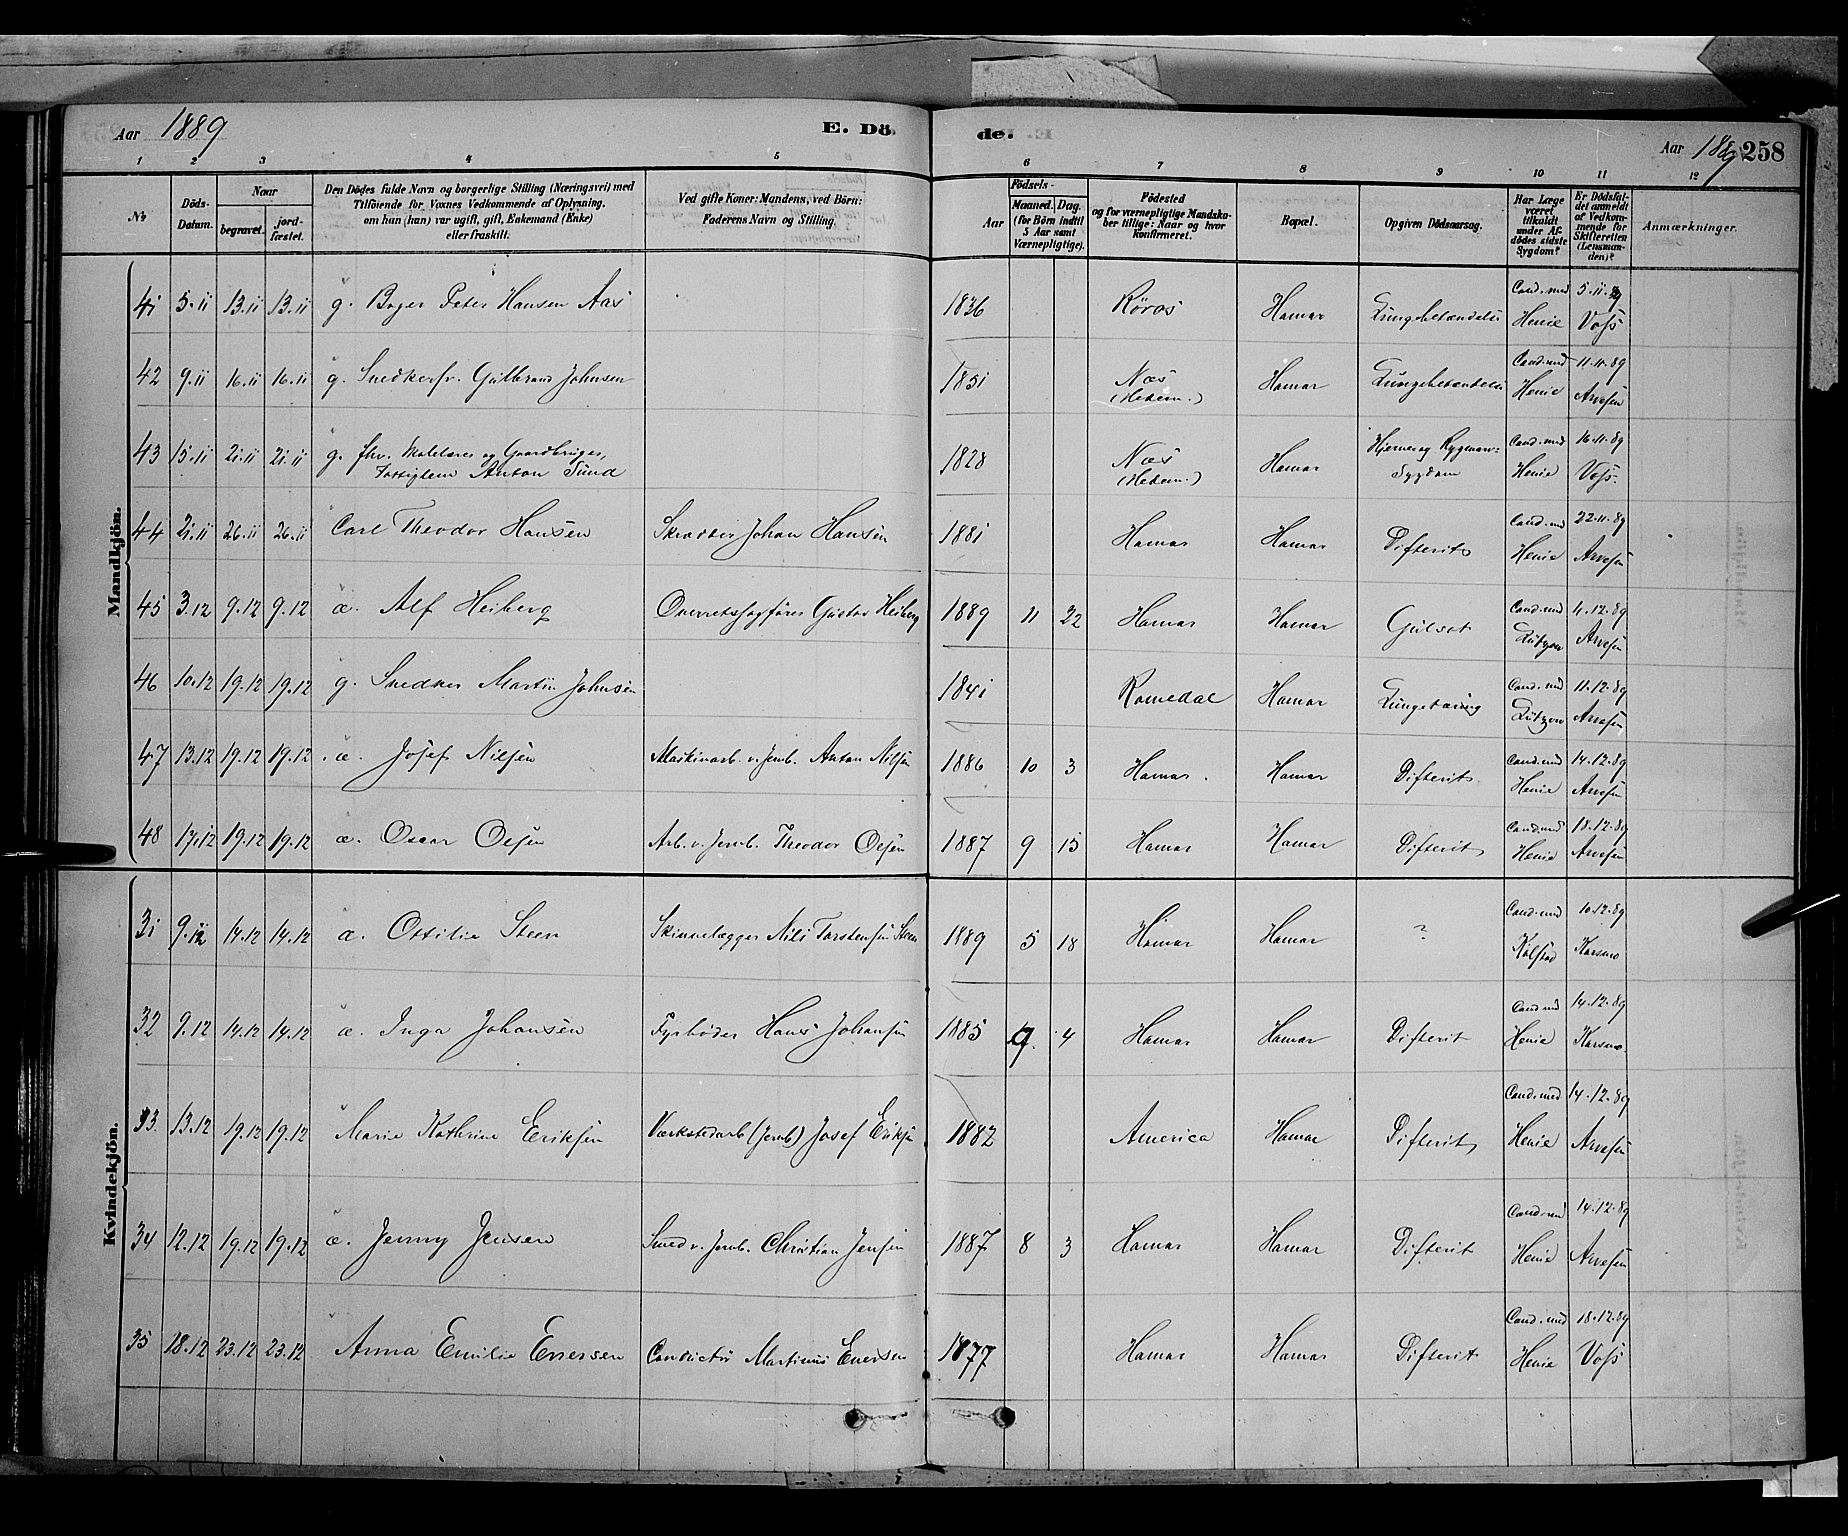 Aar 1889 E. Dö. de. Aar 1889 258
1 2 3 4 5 6 7 8 9 10 11 12
No Döds-Datum. Naar begravet. jord-fæstet. Den Dödes fulde Navn og borgerlige Stilling (Næringsvei) med Tilföiende for Voxnes Vedkommende af Oplysning, om han (han) var ugift, gift, Enkemand (Enke) eller fraskilt. Ved gifte Koner: Mandens, ved Börn: Faderens Navn og Stilling. Födsels- Aar Maaned. Dag. (for Börn indtil 5 Aar samt Værnepligtige). Födested og for værnepligtige Mandskaber tillige: Naar og hvor konfirmeret. Bopæl. Opgiven Dödsaarsag. Har Læge været tilkaldt under Afdödes sidste Sygdom? Er Dödsfaldet anmeldt af Vedkommende for Skifteretten (Lensmanden)? Anmærkninger.
Mandkjön.
41 5.11 13.11 13.11 g. Peter Hansen Aas 1836 Röros Hamar Lungebetændelse Cand. med Henie 5.11.89 Voss
42 9.11 16.11 16.11 g. Snedkersv. Gulbrand Johnsen 1851 Næs (Hedem.) Hamar Lungebetændelse Cand. med Henie 11.11.89 Arvesen
43 15.11 21.11 21.11 g. fhv. og Gaardbruger,
Anton Sund 1828 Næs (Hedem.) Hamar Hjerne og Rygmarv-Sygdom Cand. med Henie 16.11.89 Voss.
44 21.11 26.11 26.11 Carl Theodor Hansen Skrædder Johan Hansen 1881 Hamar Hamar Difterit Cand. med Henie 22.11.89 Arvesen
45 3.12 9.12 9.12 æ. Alf Heiberg Overretssagförer Gustav Heiberg 1889 11 22 Hamar Hamar Gulsot Cand. med Lützow 4.12.89 Arvesen
46 10.12 19.12 19.12 g. Snedker Martin Johnsen 1841 Romedal Hamar Lungetæring Cand. med Lützow 11.12.89 Arvesen
47 13.12 19.12 19.12 æ. Josef Nilsen Maskinarb. v. Jernb. Anton Nilsen 1886 10 3 Hamar. Hamar Difterit Cand. med Henie 14.12.89 Arvesen
48 17.12 19.12 19.12 æ. Oscar Olsen Arb. v. Jernb. Theodor Olsen 1887 9 15 Hamar Hamar Difterit Cand. med Henie 18.12.89 Arvesen
Kvindekjön.
31 9.12 14.12 14.12 æ. Ottilie Steen Skinnelægger Nils Torstensen Steen 1889 5 18 Hamar Hamar ? Cand. med Kolstad 10.12.89 Karsmo
32 9.12 14.12 14.12 æ. Inga Johansen Fyrböder Hans Johansen 1885 9. 4 Hamar Hamar Difterit Cand. med Henie 14.12.89 Karsmo.
33. 13.12 19.12 19.12 Marie Kathrine Eriksen Værkstedarb (Jernb) Josef Eriksen 1882 America Hamar Difterit Cand. med Henie 14.12.89 Arvesen
34 12.12 19.12 19.12 æ. Jenny Jensen Smed v. Jernb. Christian Jensen 1887 8 3 Hamar Hamar Difterit Cand. med Henie 14.12.89 Arvesen
35 18.12 23.12 23.12 Anna Emilie Enersen Conductör Martinus Enersen 1877 Hamar Hamar Difterit Cand. med Henie 18.12.89 Voss